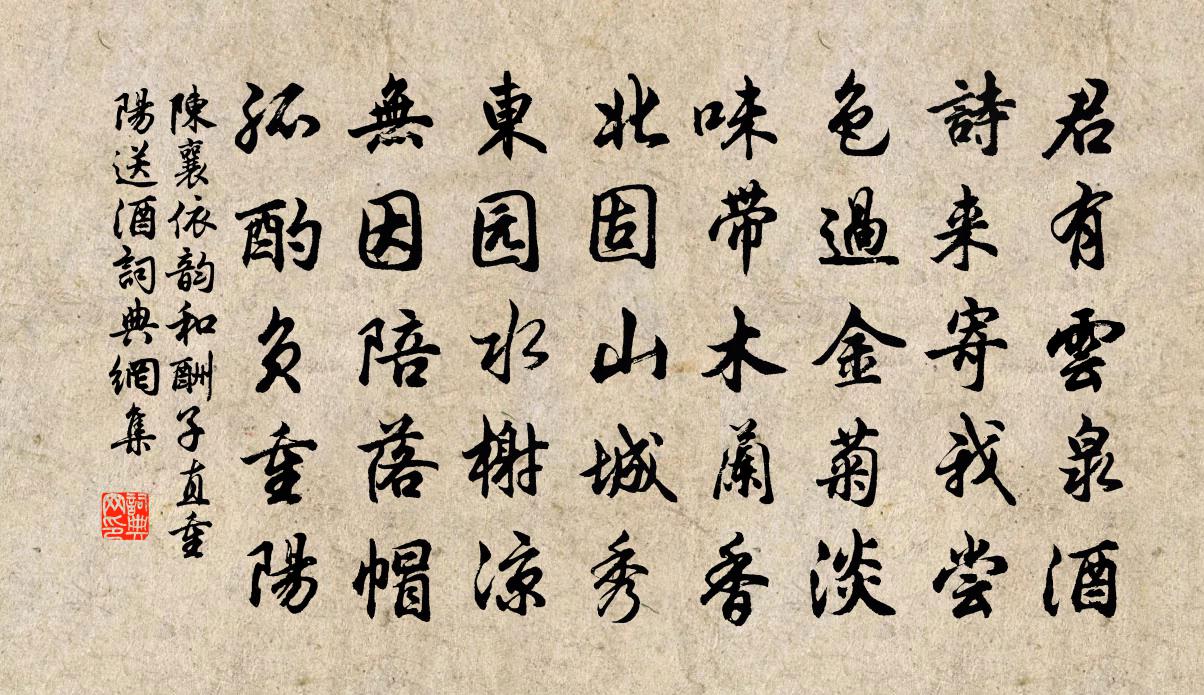 君有雲泉酒
詩来寄我尝
色過金菊淡
味帶木蘭香
北固山城秀
東园水榭凉
無因陪落帽
孤酌负重陽
陳襄依韵和酬子直重
陽送酒詞典網集
詞典
网印